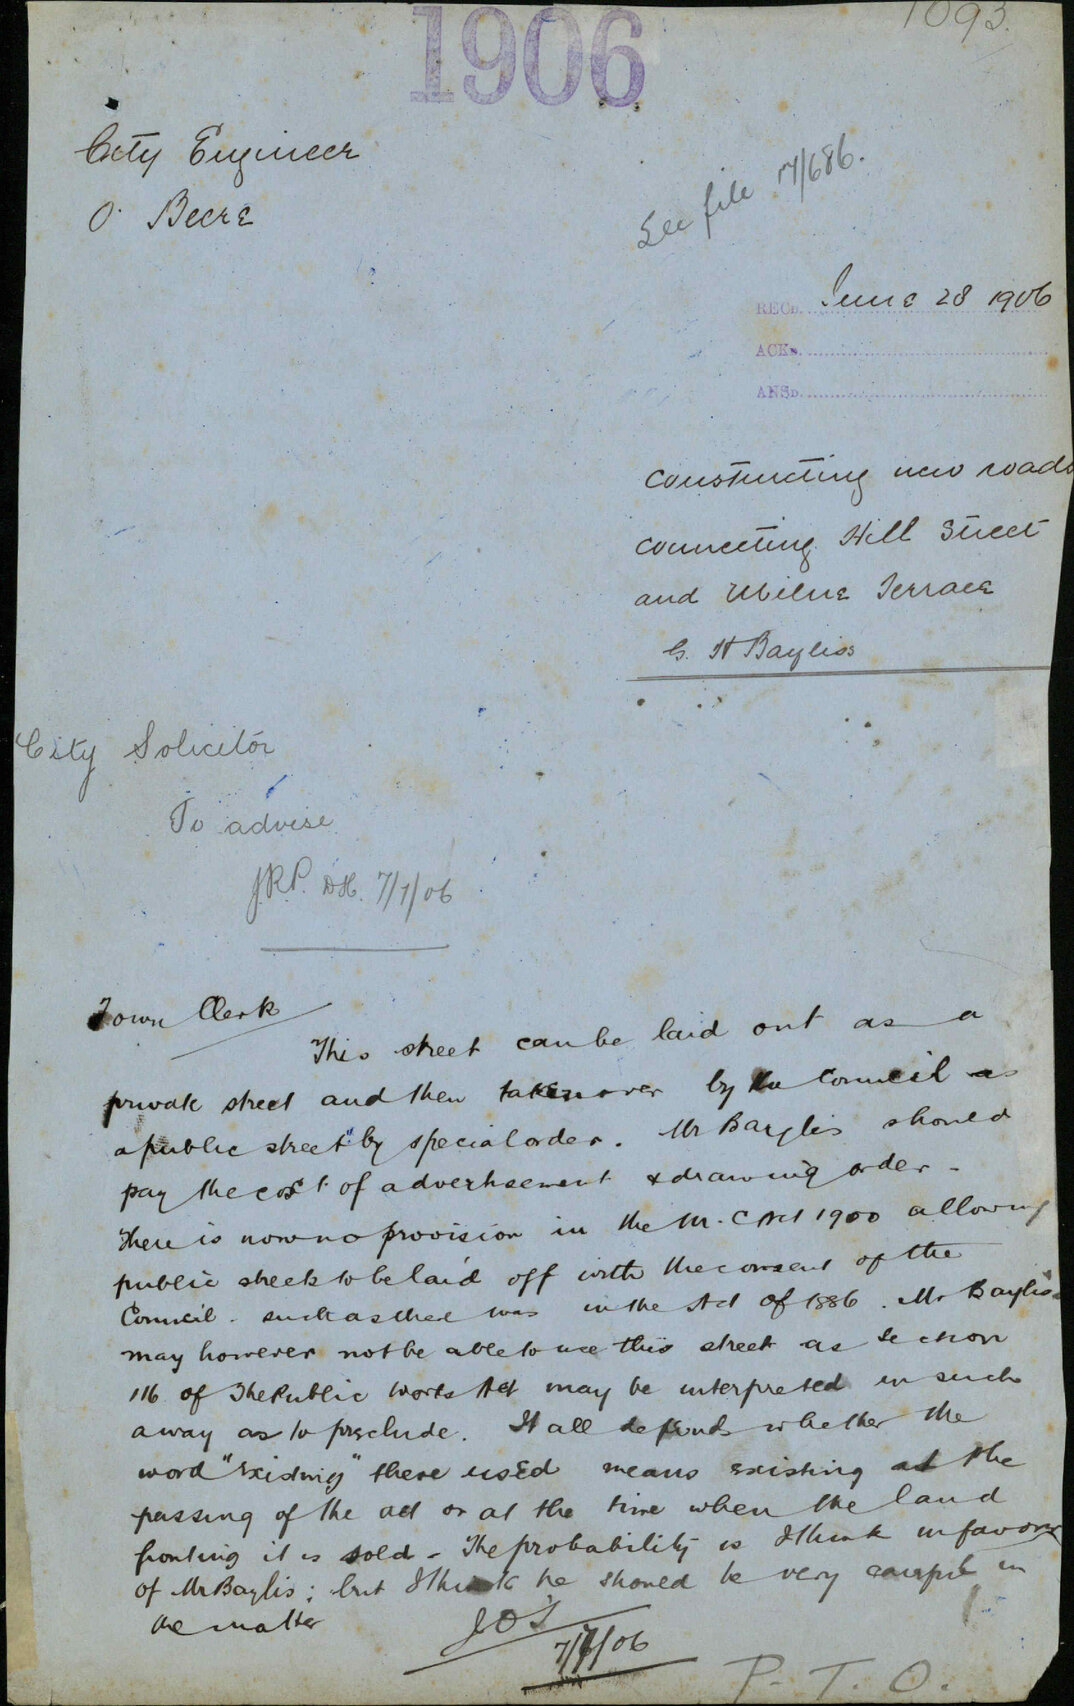 1906
1093.
City Engineer
O. Beere
See file 17/686.
RECD. June 28 1906
ACKD.
ANSD.
Constructing new roads
connecting Hill Street
and Milne Terrace
G. H Bayliss
City Solicitor
To advise
JRP. 7/7/06
Town Clerk
This street can be laid out as a
private street and then taken over by the Council as
a public street by special order. Mr Baylis should
pay the cost of advertisement & drawing order -
There is now no provision in the M. C Act 1900 allowing
public streets to be laid off with the consent of the
Council. such as there was in the Act of 1886. Mr Baylis
may however not be able to use this street as Section
116 of The Public Works Act may be interpreted in such
a way as to preclude. It all depends whether the
word "Existing" there used means existing at the
passing of the act or at the time when the land
fronting it is sold - The probability is I think in favour
of Mr Baylis; but I think he should be very careful in
the matter
JO'S
7/7/06
P. T. O.